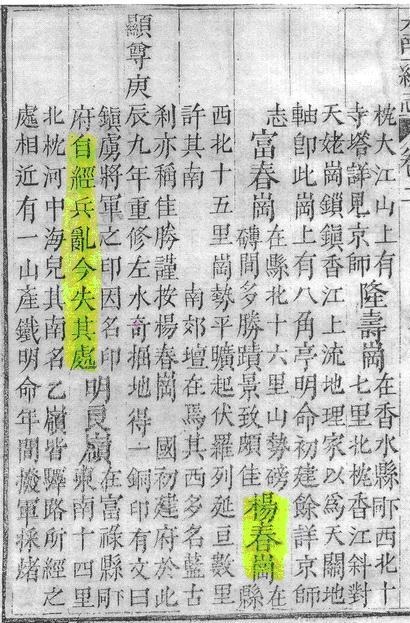 枕大江山上有
寺塔詳見京師
隆壽崗
在香水縣𠂆西北十
七里北枕香江斜對
天姥崗鎖鎮香江上流地理家以爲天關地
軸卽此崗上有八角亭明命初建餘詳京師
志
富春崗
在縣北十六里山勢磅
礴間多勝蹟景致頗佳
楊春崗
在
縣
西北十五里崗勢平曠起伏羅列延亘數里
許其南 南郊壇在焉其西多名藍古
刹亦稱佳勝謹按楊春崗 國初建府於此
顯尊庚
辰九年重修左水奇掘地得一銅印有文曰
鎮虜將軍之印因名印
府自經兵亂今失其處
明良嶺
在富祿縣𠂆
東南十四里
北枕河中海兒其南名乙嶺皆驛路所經之
處相近有一山產鐵明命年間撥軍採